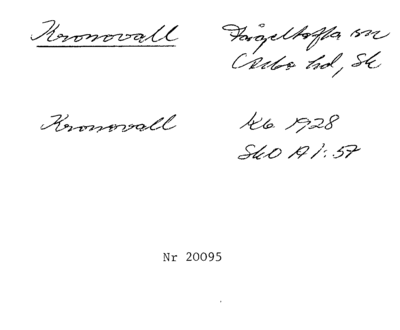 Kronovall Fågeltofta sn
Albo hd, Sk
Kronovall Kb 1928
SkO A1:57
Nr 20095